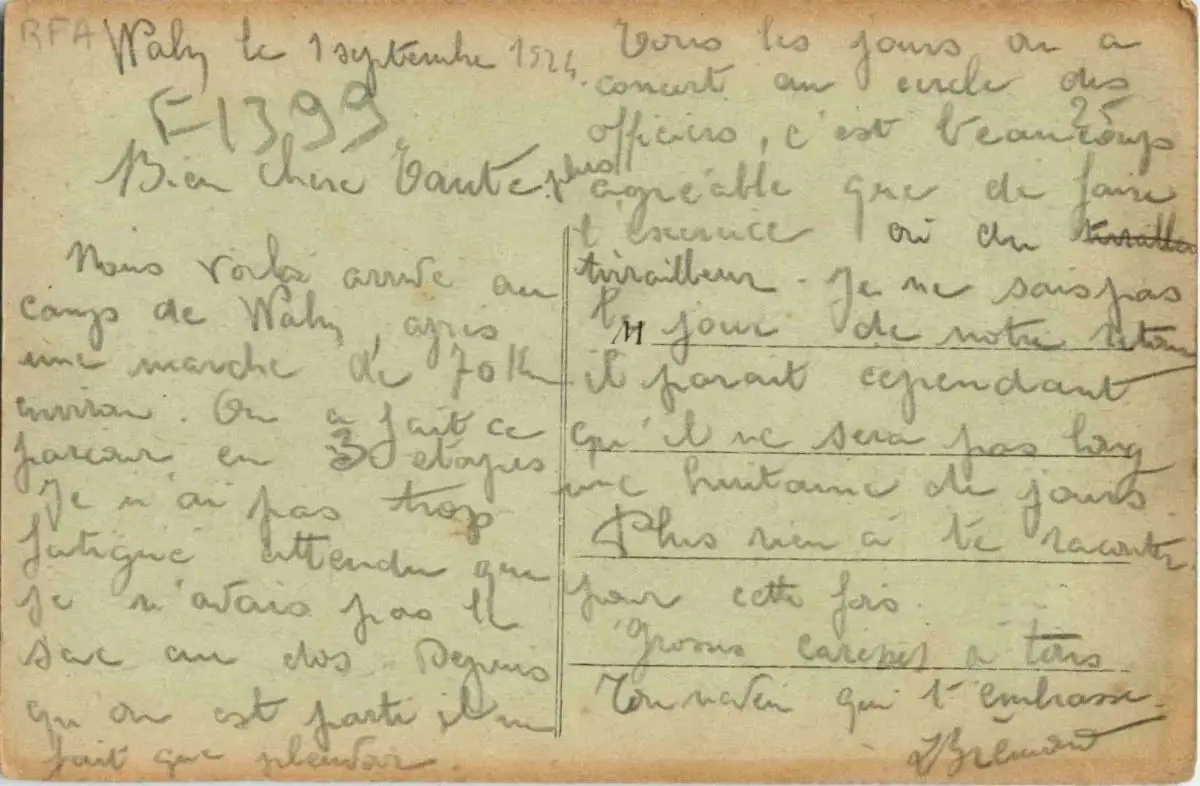 RFA
Wahn le 1 septembre 1924.
F1399
Bien chere Tante.
Nous voilà arrivé au
camp de Wahn, après
une marche de 70 Km
environ. On a fait ce
parcour en 3 étapes
Je n'ai pas trop
fatigué attendu que
je n'avais pas le
sac au dos. Depuis
qu'on est parti il ne
fait que pleuvoir.
Tous les jours on a
concert au cercle des
25
officiers, c'est beaucoups
plus agréable que de faire
l'exercice ou du
tirrailleur. Je ne sais pas
le jour de notre retour
il parait cependant
qu'il ne sera pas long
une huitaine de jours
Plus rien à te raconter
pour cette fois
Grosses caresses à tous
Ton neveu qui t'embrasse.